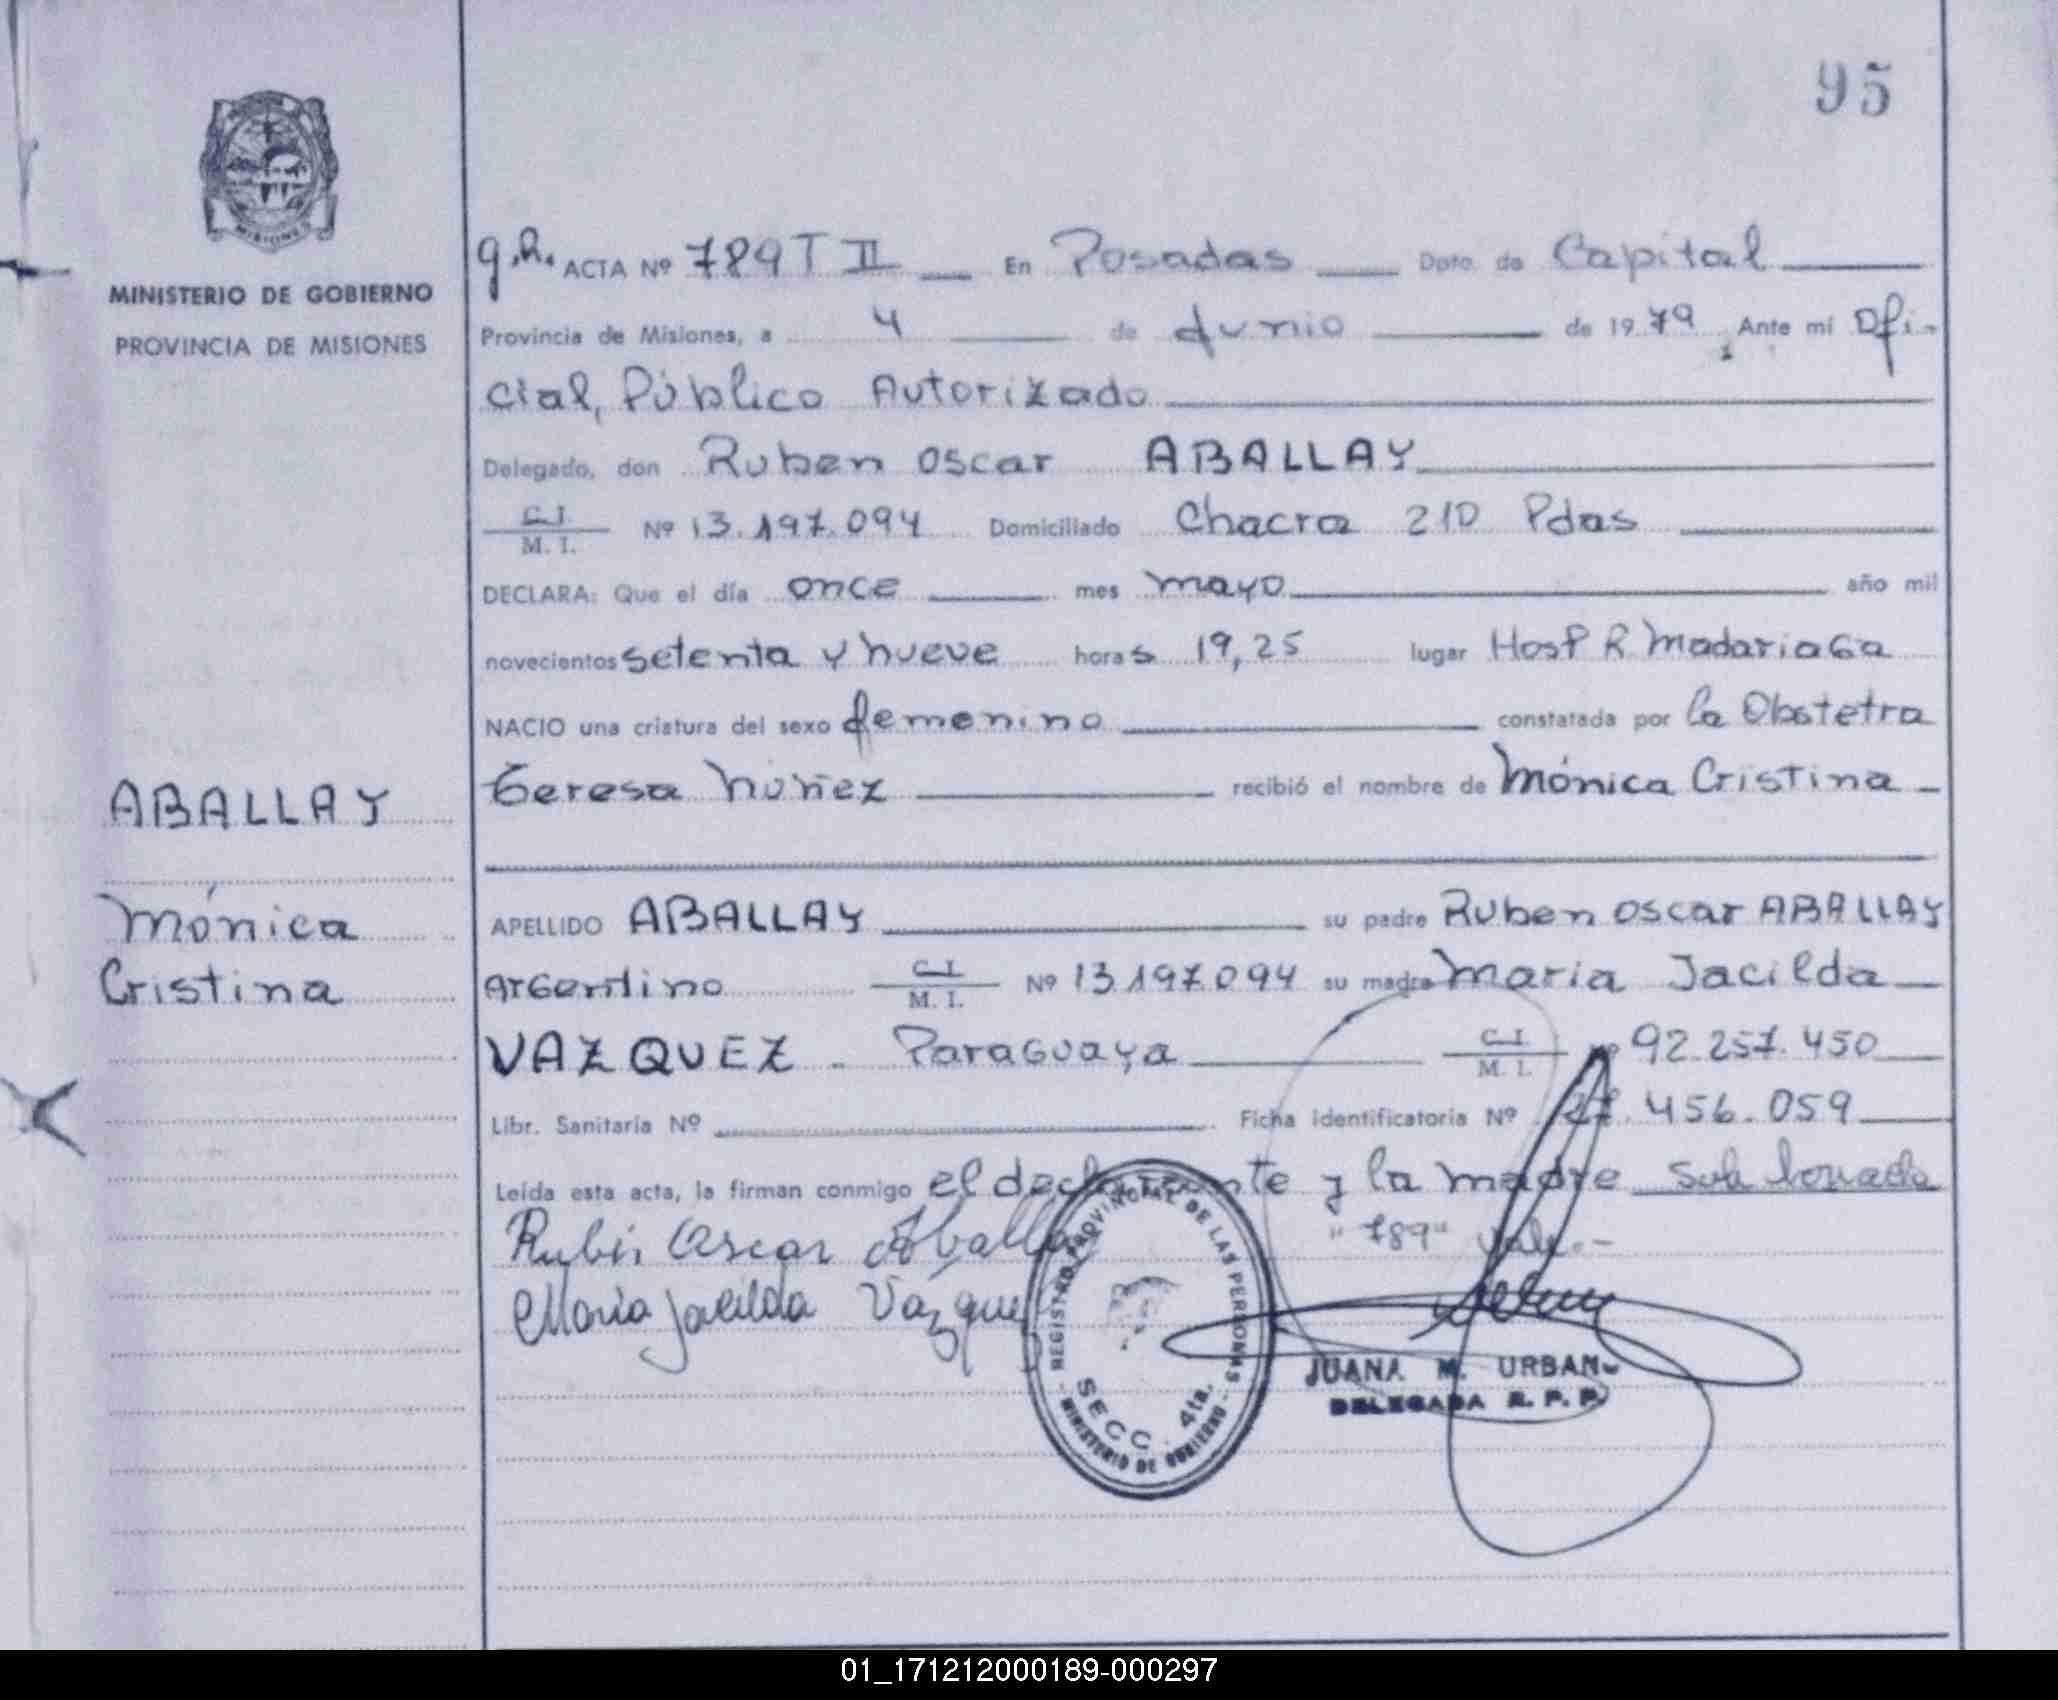 95
MISIONES
MINISTERIO DE GOBIERNO
PROVINCIA DE MISIONES
ABALLAY
Mónica
Cristina
g.h. ACTA Nº 789 T II En Posadas Dpto. de Capital
Provincia de Misiones, a 4 de Junio de 1979, Ante mi Ofi-
cial, Público Autorizado
Delegado, don Ruben Oscar ABALLAY
C.I. / M. I. Nº 13.197.094 Domiciliado Chacra 210 Pdas
DECLARA: Que el día once mes mayo año mil
novecientos setenta y nueve horas 19,25 lugar Hosp R Madariaga
NACIO una criatura del sexo femenino constatada por la Obstetra
Teresa Núñez recibió el nombre de Mónica Cristina -
APELLIDO ABALLAY su padre Ruben Oscar ABALLAY
Argentino C.I. / M. I. Nº 13.197.094 su madre Maria Jacilda
VAZQUEZ - Paraguaya C.I. / M. I. Nº 92.257.450
Libr. Sanitaria Nº Ficha identificatoria Nº 27.456.059
Leída esta acta, la firman conmigo el declarante y la madre
"789" vale.-
Rubén Oscar Aballay
Maria Jacilda Vázquez
REGISTRO PROVINCIAL DE LAS PERSONAS
SECC. 4ta.
MINISTERIO DE GOBIERNO
JUANA M. URBAN
DELEGADA R. P. P.
01_171212000189-000297